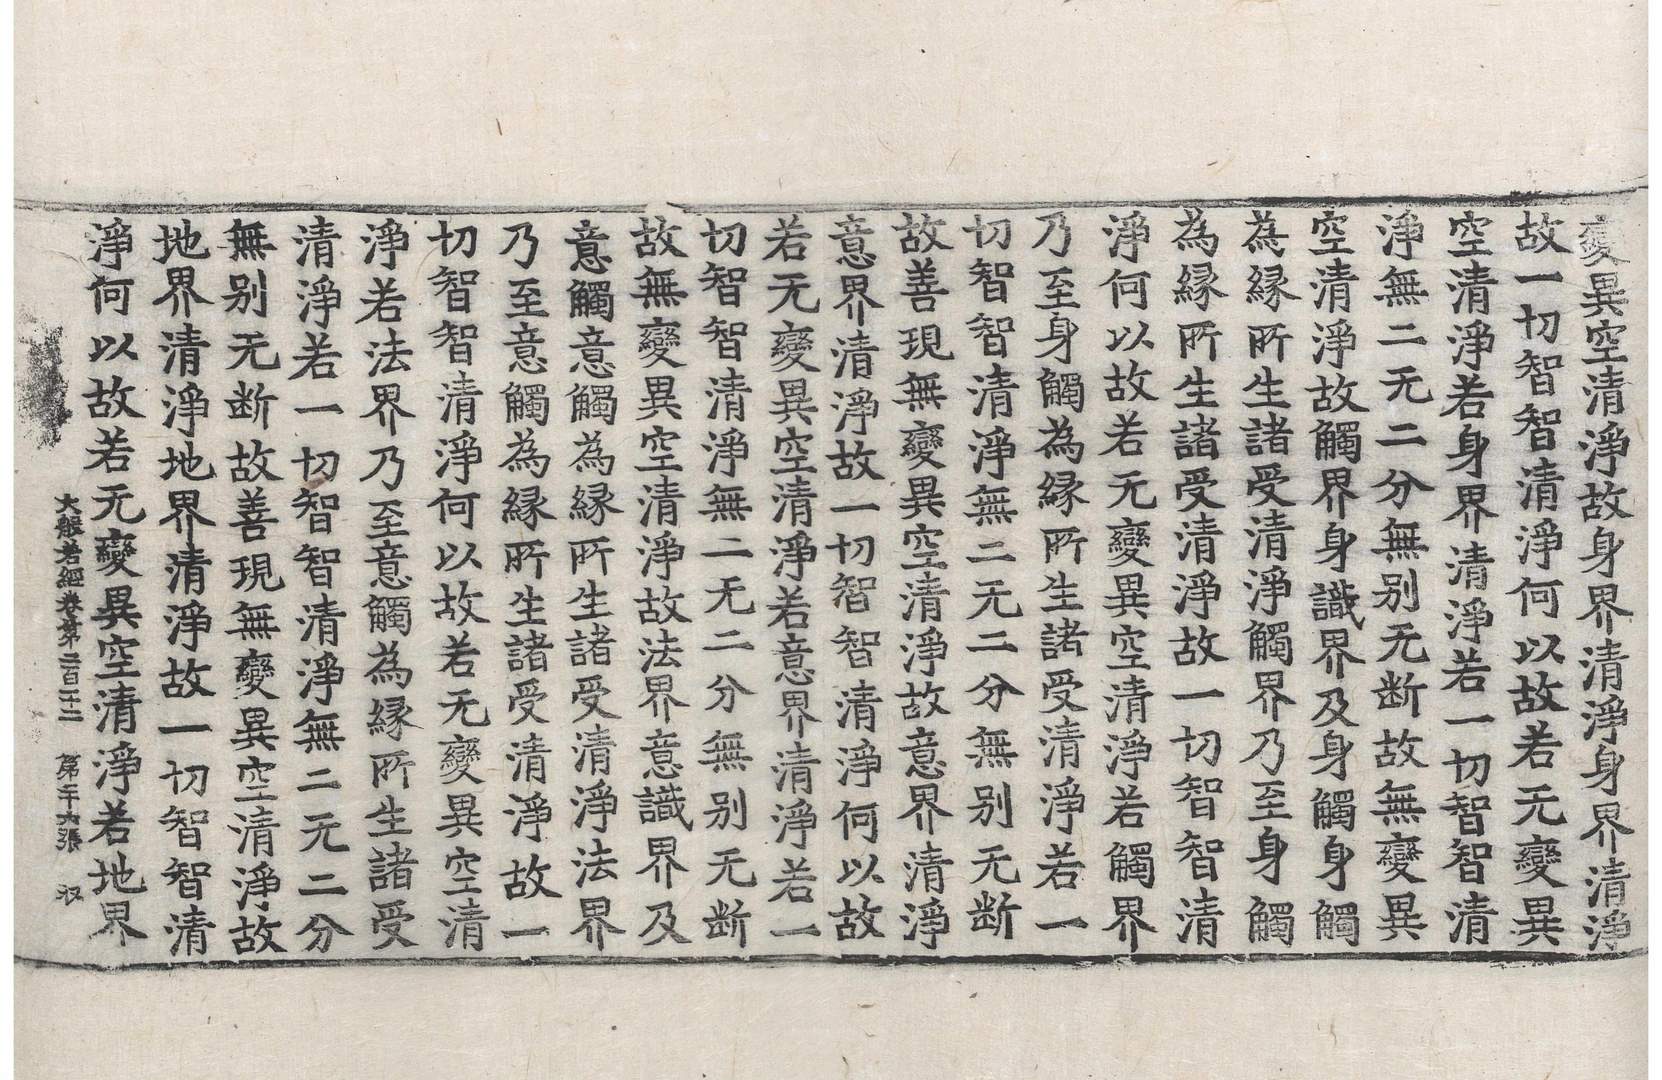 變異空清淨故身界清淨身界清淨
故一切智智清淨何以故若无變異
空清淨若身界清淨若一切智智清
淨無二无二分無别无断故無變異
空清淨故觸界身識界及身觸身觸
為縁所生諸受清淨觸界乃至身觸
為縁所生諸受清淨故一切智智清
淨何以故若无變異空清淨若觸界
乃至身觸為縁所生諸受清淨若一
切智智清淨無二无二分無别无断
故善現無變異空清淨故意界清淨
意界清淨故一切智智清淨何以故
若无變異空清淨若意界清淨若一
切智智清淨無二无二分無别无断
故無變異空清淨故法界意識界及
意觸意觸為縁所生諸受清淨法界
乃至意觸為縁所生諸受清淨故一
切智智清淨何以故若无變異空清
淨若法界乃至意觸為縁所生諸受
清淨若一切智智清淨無二无二分
無别无断故善現無變異空清淨故
地界清淨地界清淨故一切智智清
淨何以故若无變異空清淨若地界
大般若經卷第二百 第 張